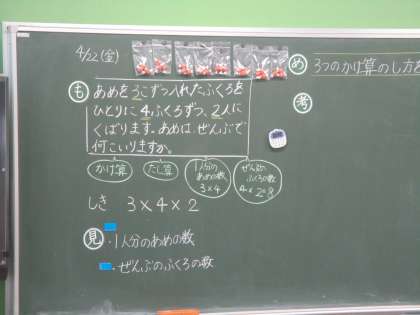 4/22(金)
め 3つのかけ算のしかたを
も あめを3こずつ入れたふくろを
ひとりに4ふくろずつ、2人に
くばります。あめは、ぜんぶで
何こいりますか。
考
かけ算
たし算
1人分の
あめの数
3×4
ぜんぶの
ふくろの数
4×2=8
しき 3×4×2
見 ・1人分のあめの数
・ぜんぶのふくろの数